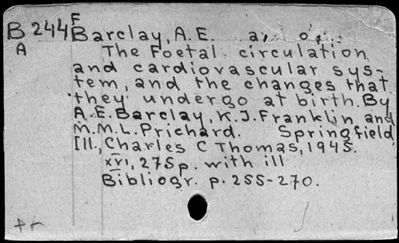 B 244F Barclay, A. E. a
A The Foetal circulation
and cardiovascular sys-
tem, and the changes that
they undergo at birth. By
A. E. Barclay, K. J. Franklin and
M. M. L. Prichard. Springfield
Ill., Charles C Thomas, 1945.
xvi, 275 p. with ill
Bibliogr. p. 255-270.